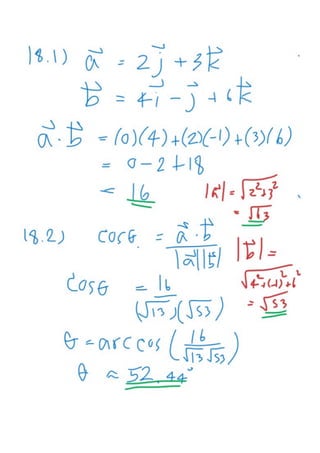 18.1) a⃗ = 2j⃗ + 3k⃗
b⃗ = 4i⃗ - j⃗ + 6k⃗
a⃗·b⃗ = (0)(4)+(2)(-1)+(3)(6)
= 0-2+18
= 16
|a⃗| = √2²+3²
= √13
18.2) cosθ = a⃗·b⃗ / |a⃗||b⃗|
|b⃗| =
√4²+(-1)²+6²
= √53
cosθ = 16 / (√13)(√53)
θ = arccos (16 / √13 √53)
θ ≈ 52.44°